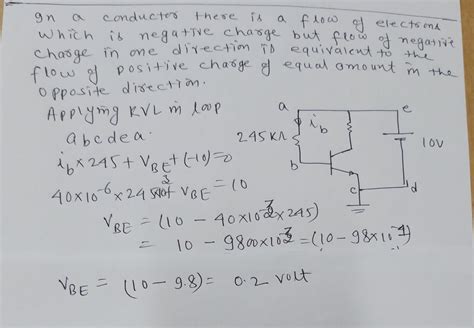 In a conductor there is a flow of electrons
which is negative charge but flow of negative
charge in one direction is equivalent to the
flow of positive charge of equal amount in the
opposite direction.
Applying KVL in loop
abcdea.
ib×245 + VBE + (-10)=0
40×10^-6×245×10^3 + VBE = 10
VBE = (10 - 40×10^-3×245)
= 10 - 9800×10^-3 = (10 - 98×10^-1)
VBE = (10 - 9.8) = 0.2 volt
a
e
ib
245KΩ
10V
b
c
d